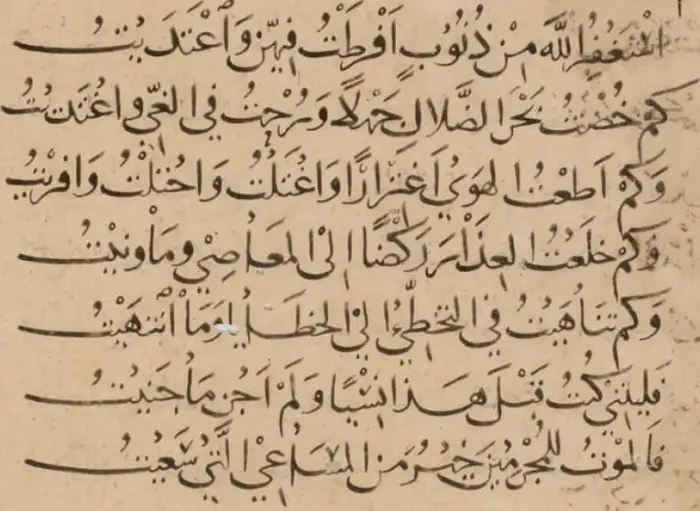 اَسْتَغْفِرُ اللهَ مِنْ ذُنُوبٍ اَفْرَطْتُ فِيهِنَّ وَاعْتَدَيْتُ
كَمْ خُضْتُ بَحْرَ الضَّلَالِ جَهْلًا وَرُحْتُ فِي الغَيِّ وَاغْتَدَيْتُ
وَكَمْ اَطَعْتُ الهَوَى اغْتِرَارًا وَاغْتَلْتُ وَاحْتَلْتُ وَافْتَرَيْتُ
وَكَمْ خَلَعْتُ العِذَارَ رَكْضًا اِلَى المَعَاصِي وَمَا وَنَيْتُ
وَكَمْ تَنَاهَيْتُ فِي التَّخَطِّي اِلَى الخَطَايَا وَمَا انْتَهَيْتُ
فَلَيْتَنِي كُنْتُ قَبْلَ هَذَا نَسْيًا وَلَمْ اَجْنِ مَا جَنَيْتُ
فَالمَوْتُ لِلْمُجْرِمِينَ خَيْرٌ مِنَ المَسَاعِي الَّتِي سَعَيْتُ